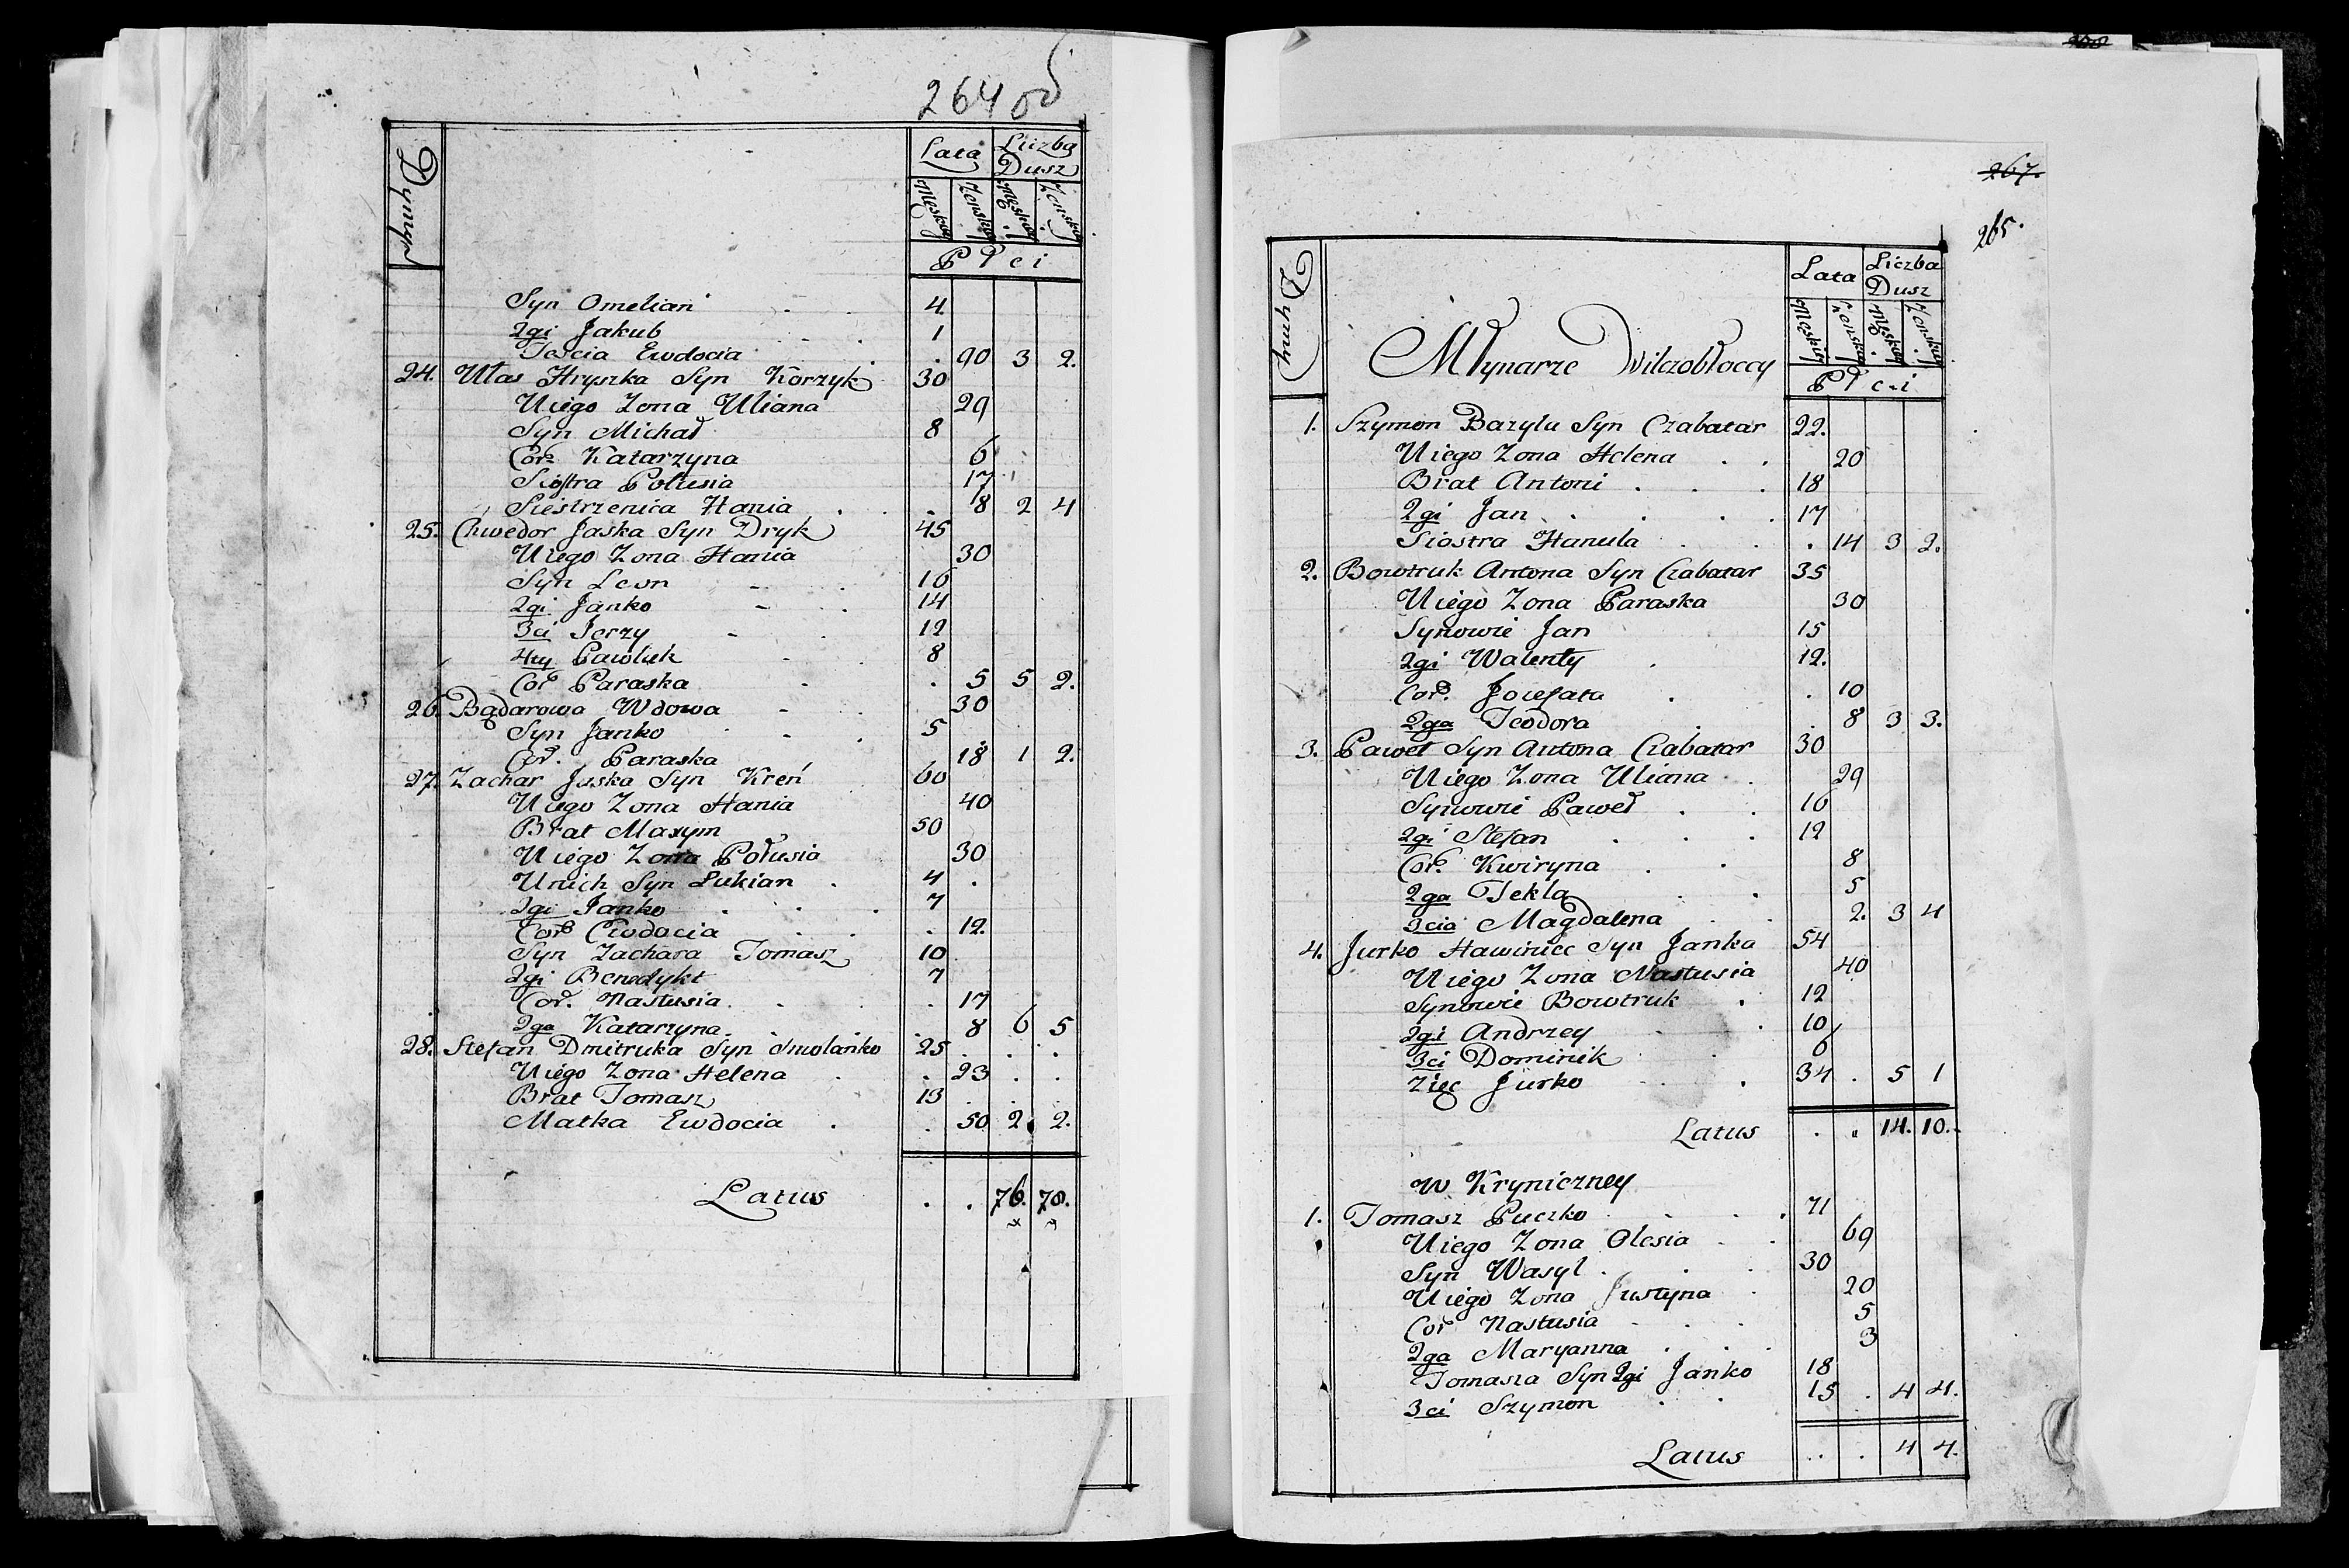 264 об
Dymy
Lata Liczba Dusz
Męskiey Żeńskiey Męskiey Żeńskiey
Płci
Syn Omelian 4
2gi Jakub 1
Teścia Ewdocia 90 3 2.
24. Ułas Hryszka Syn Korzyk 30
Uiego Zona Uliana 29
Syn Michał 8
Cór: Katarzyna 6
Siostra Połusia 17
Siestrzenica Hania 18 2 4
25. Chwedor Jaska Syn Dryk 45
Uiego Zona Hania 30
Syn Leon 16
2gi Janko 14
3ci Jerzy 12
4ty Pawluk 8
Cór Paraska 5 5 2.
26. Bądarowa Wdowa 30
Syn Janko 5
Cór. Paraska 18 1 2.
27. Zachar Jaska Syn Kreń 60
Uiego Zona Hania 40
Brat Maxym 50
Uiego Zona Połusia 30
Unich Syn Łukian 4
2gi Janko 7
Cór Ewdocia 12.
Syn Zachara Tomasz 10
2gi Benedykt 7
Cór. Nastusia 17
2ga Katarzyna 8 6 5
28. Stefan Dmitruka Syn Smolanko 25
Uiego Zona Helena 23
Brat Tomasz 13
Matka Ewdocia 50 2 2.
Latus 76. 78.
267.
265.
Dymy
Młynarze Wilczobłoccy
Lata Liczba Dusz
Męskiey Żeńskiey Męskiey Żeńskiey
Płci
1. Szymon Bazylu Syn Czabatar 22.
Uiego Zona Helena 20
Brat Antoni 18
2gi Jan 17
Siostra Hanula 14 3 2.
2. Bowtruk Antona Syn Czabatar 35
Uiego Zona Paraska 30
Synowie Jan 15
2gi Walenty 12.
Cór. Jozefata 10
2ga Teodora 8 3 3.
3. Paweł Syn Antona Czabatar 30
Uiego Zona Uliana 29
Synowie Paweł 16
2gi Stefan 12
Cór. Kwiryna 8
2ga Tekla 5
3cia Magdalena 2. 3 4
4. Jurko Hawiniec Syn Janka 54
Uiego Zona Nastusia 40
Synowie Bowtruk 12
2gi Andrzey 10
3ci Dominik 6
Zięc Jurko 34 5 1
Latus 14. 10.
W Kryniczney
1. Tomasz Puczko 71
Uiego Zona Olesia 69
Syn Wasyl 30
Uiego Zona Justyna 20
Cór Nastusia 5
2ga Maryanna 3
Tomasza Syn 2gi Janko 18
3ci Szymon 15 4 4.
Latus 4 4.